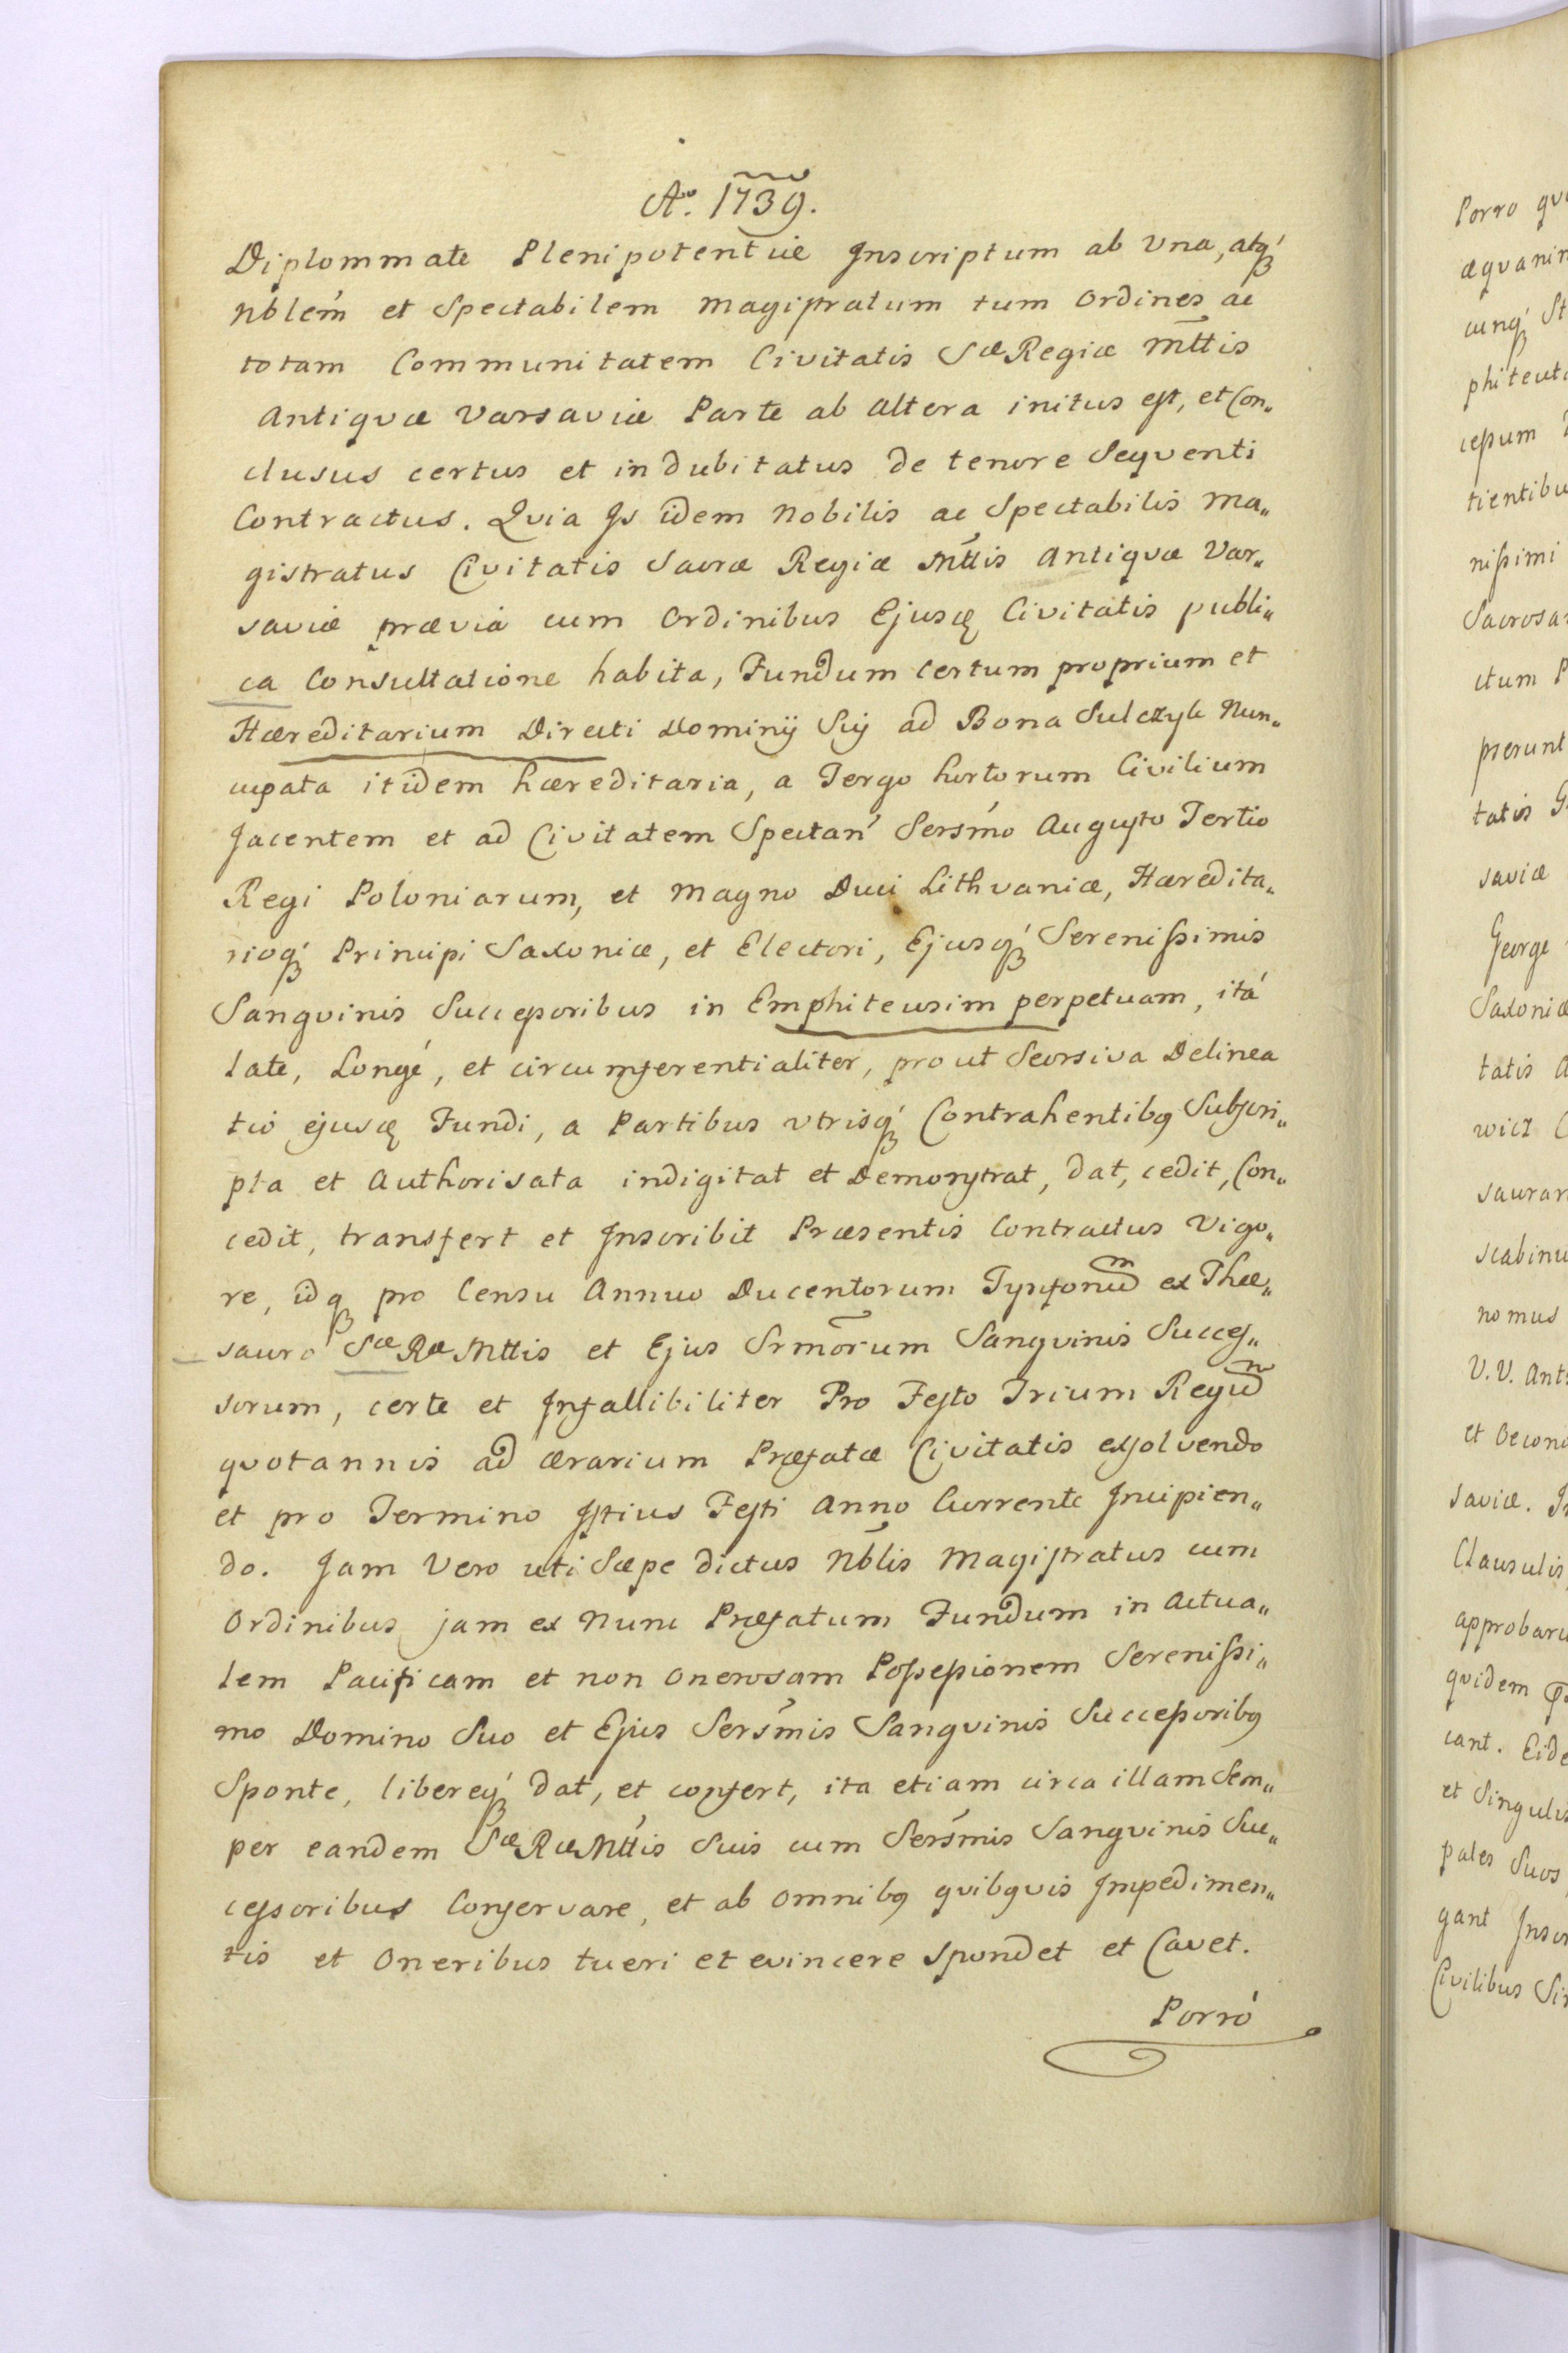 Ao. 1739.
Diplommate Plenipotentiæ Inscriptum ab Una, atq́
Nblem̃ et Spectabilem Magistratum tum Ordines ac
totam Communitatem Civitatis Sæ Regiæ Mttis
Antiquæ Varsaviæ Parte ab altera initus est, et Con„
clusus certus et indubitatus de tenore Sequenti
Contractus. Quia Is idem Nobilis ac Spectabilis Ma„
gistratus Civitatis Sacræ Regiæ Mttis Antiquæ Var„
saviæ prævia cum Ordinibus Ejusq Civitatis publi„
ca Consultatione habita, Fundum certum proprium et
Hæreditarium Directi Dominij Sŭj ad Bona Sulczyk Nun„
cupata itidem hæreditaria, a Tergo hortorum Civilium
Jacentem et ad Civitatem Spectań Sersḿo Augusto Tertio
Regi Poloniarum, et Magno Duci Lithvaniæ, Hæredita„
rioq́ Principi Saxoniæ, et Electori, Ejusq́ Serenissimis
Sangvinis Successoribus in Emphiteusim perpetuam, itá
late, Longé, et circumferentialiter, prout Seorsiva Delinea
tio ejusq Fundi, a Partibus utrisq́ Contrahentibq Subscri„
pta et Authorisata indigitat et Demonstrat, dat, cedit, Con„
cedit, transfert et Inscribit Præsentis Contractus Vigo„
re, idq pro Censu Annuo Ducentorum Tynfonum ex Thæ„
sauro Sæ Ræ Mttis et Ejus Srmorum Sangvinis Succes„
sorum, certe et Infallibiliter Pro Festo Trium Regum
quotannis ad ærarium Præfatæ Civitatis exsolvendo
et pro Termino Istius Festi Anno Currente Incipien„
do. Jam Vero uti Sæpe dictus Nblis Magistratus cum
Ordinibus jam ex Nunc Præfatum Fundum in Actua„
lem Pacificam et non Onerosam Possessionem Serenissi„
mo Domino Suo et Ejus Sersm̃is Sangvinis Successoribq
Sponte, libereq́ dat, et confert, ita etiam circa illam Sem„
per eandem Sæ Ræ Mttis Suis cum Sersḿis Sangvinis Suc„
cessoribus Conservare, et ab Omnibq quibqvis Impedimen„
tis et Oneribus tueri et evincere Spondet et Cavet.
Porró
Porro
cunq́ St
phiteut
cessum
tientibu
nissimi
Sacrosa
ctum P
pserunt
tatis
saviæ
George
Saxoniæ
tatis A
wicz
saurar
scabinu
nomus
V. V. Ant
et Oecono
saviæ.
Clausulis
approbaru
quidem
cant. Eide
et Singulis
pales Suos
gant Inscr
Civilibus